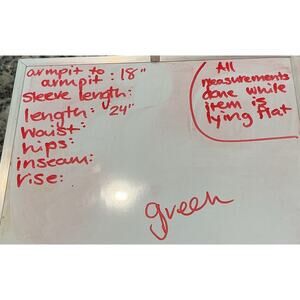 armpit to
armpit : 18"
sleeve length:
length: 24"
Waist:
hips:
inseam:
rise:
All
measurements
done while
item is
lying flat
green